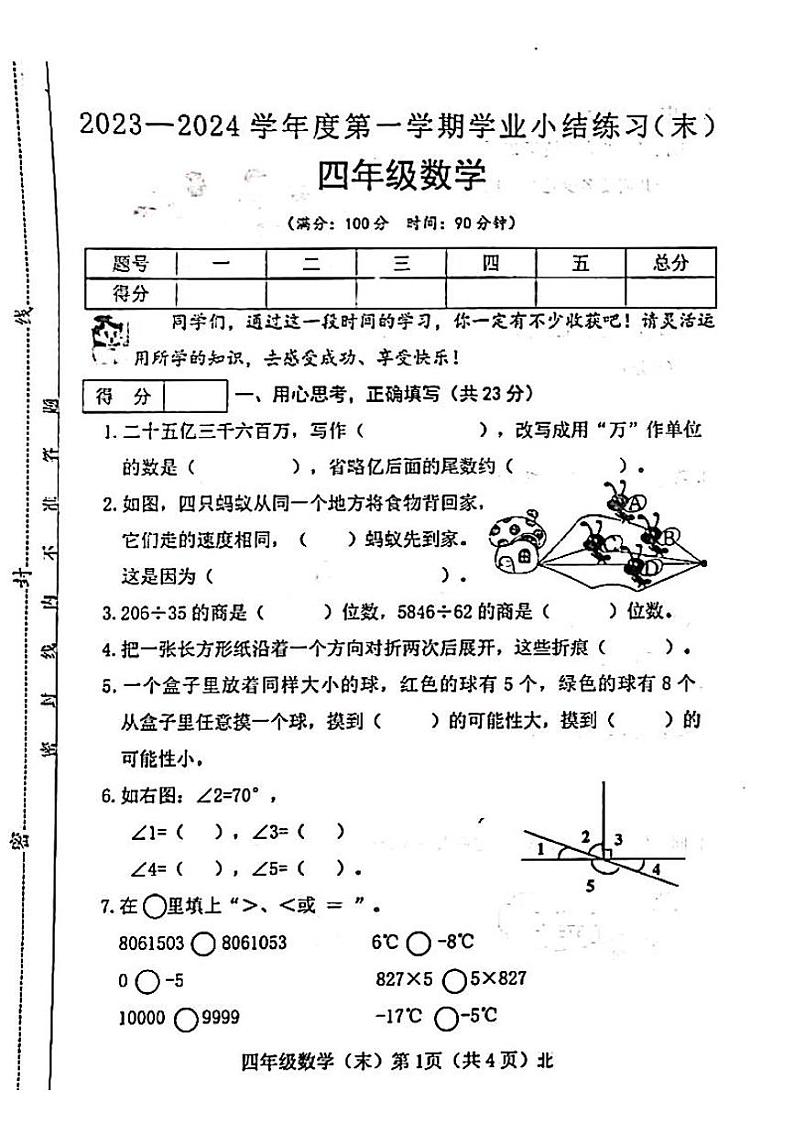 2023—2024 学年度第一学期学业小结练习（末）
四年级数学
（满分：100分 时间：90分钟）
题号 一 二 三 四 五 总分
得分
同学们，通过这一段时间的学习，你一定有不少收获吧！请灵活运
用所学的知识，去感受成功、享受快乐！
得 分 一、用心思考，正确填写（共23分）
1. 二十五亿三千六百万，写作（ ），改写成用“万”作单位
的数是（ ），省略亿后面的尾数约（ ）。
2. 如图，四只蚂蚁从同一个地方将食物背回家，
它们走的速度相同，（ ）蚂蚁先到家。
这是因为（ ）。
A
B
C
D
3. 206÷35的商是（ ）位数，5846÷62的商是（ ）位数。
4. 把一张长方形纸沿着一个方向对折两次后展开，这些折痕（ ）。
5. 一个盒子里放着同样大小的球，红色的球有5个，绿色的球有8个
从盒子里任意摸一个球，摸到（ ）的可能性大，摸到（ ）的
可能性小。
6. 如右图：∠2=70°，
∠1=（ ），∠3=（ ）
∠4=（ ），∠5=（ ）。
1 2 3
4
5
7. 在○里填上“>、<或 = ”。
8061503 ○ 8061053 6℃ ○ -8℃
0 ○ -5 827×5 ○ 5×827
10000 ○ 9999 -17℃ ○ -5℃
四年级数学（末）第1页（共4页）北
密 封 线
密 封 线 内 不 准 答 题